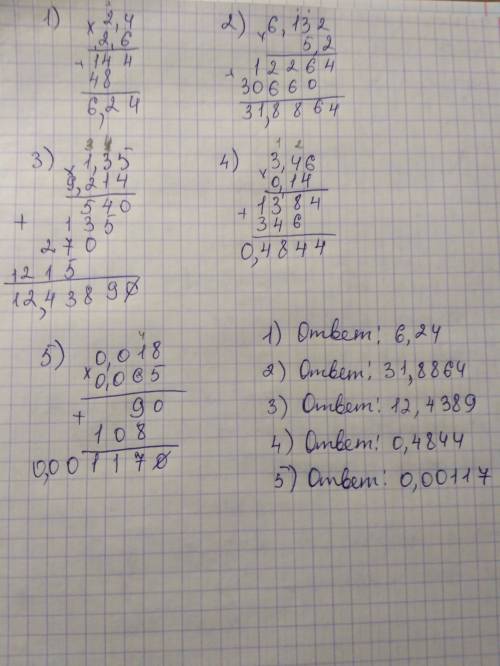 1) 2,4
× 2,6
+ 144
48
6,24
2) 6,132
× 5,2
+ 12264
30660
31,8864
3) 1,35
× 9,214
540
+ 135
270
1215
12,43890
4) 3,46
× 0,14
+ 1384
346
0,4844
5) 0,018
× 0,065
+ 90
108
0,001170
1) Ответ: 6,24
2) Ответ: 31,8864
3) Ответ: 12,4389
4) Ответ: 0,4844
5) Ответ: 0,00117